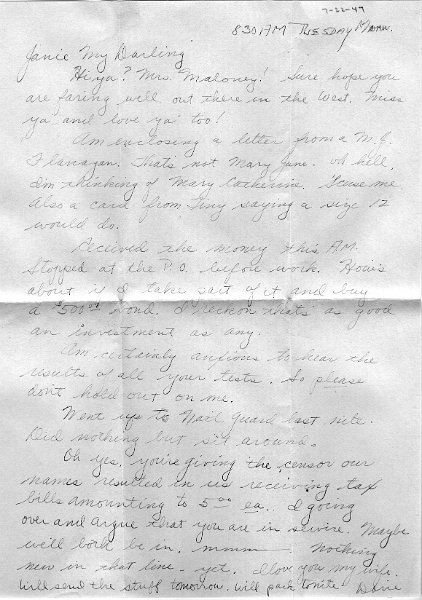 7-22-47
8 30 AM Tuesday Morn.
Janie My Darling
Hi ya? Mrs. Maloney! Sure hope you
are faring well out there in the West. Miss
ya' and love ya' too!
Am enclosing a letter from a M.J.
Flanagan. That's not Mary Jane. Oh hell,
I'm thinking of Mary Catherine. 'Scuse me
Also a card from saying a size 12
would do.
Recieved the money this A.M.
Stopped at the P.O. before work. How's
about is I take sart of it and buy
a $500.00 bond. I reckon that's as good
an investment as any.
Am certainly anxious to hear the
results of all your tests. So please
don't hold out on me.
Went up to Nail Guard last nite.
Did nothing but sit around.
Oh yes, you're giving the censor our
names resulted in us receiving tax
bills amounting to 5.00 ea. I going
over and argue that you are in service. Maybe
we'll both be in. mmmm Nothing
new in that line - yet. I love you my wife.
Will send the stuff tomorrow. Will pack tonite